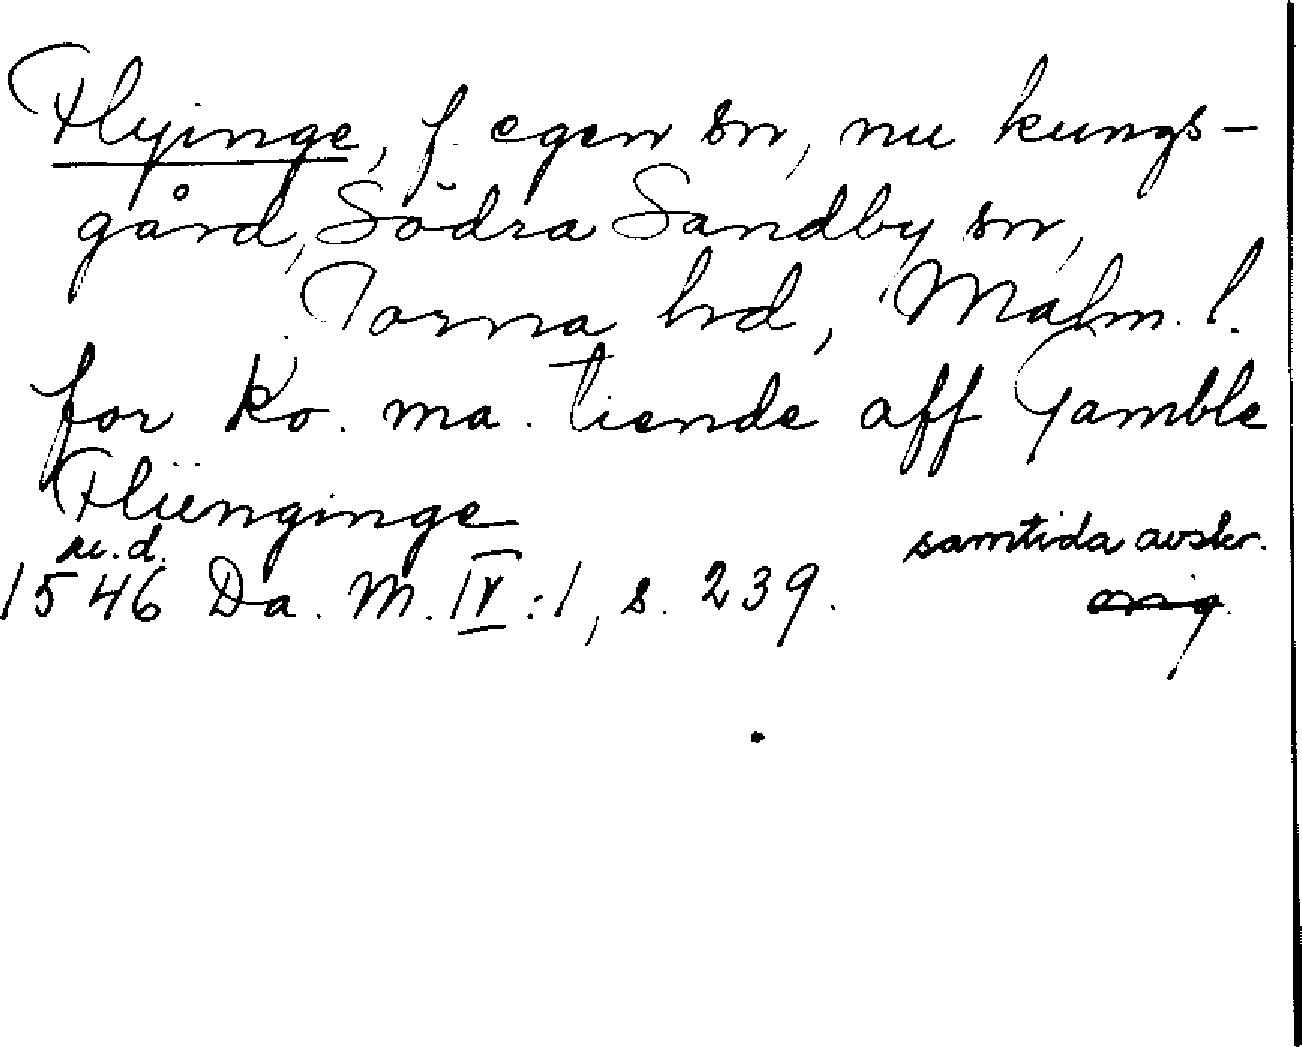 Flyinge, f. egen sn, nu kungs-
gård, Södra Sandby sn,
Torna hd, Malm. l.
for Ko. ma. tiende aff Gamble
Flüenginge
u.d. samtida avskr.
1546 Da. M. IV:1, s. 239. orig.